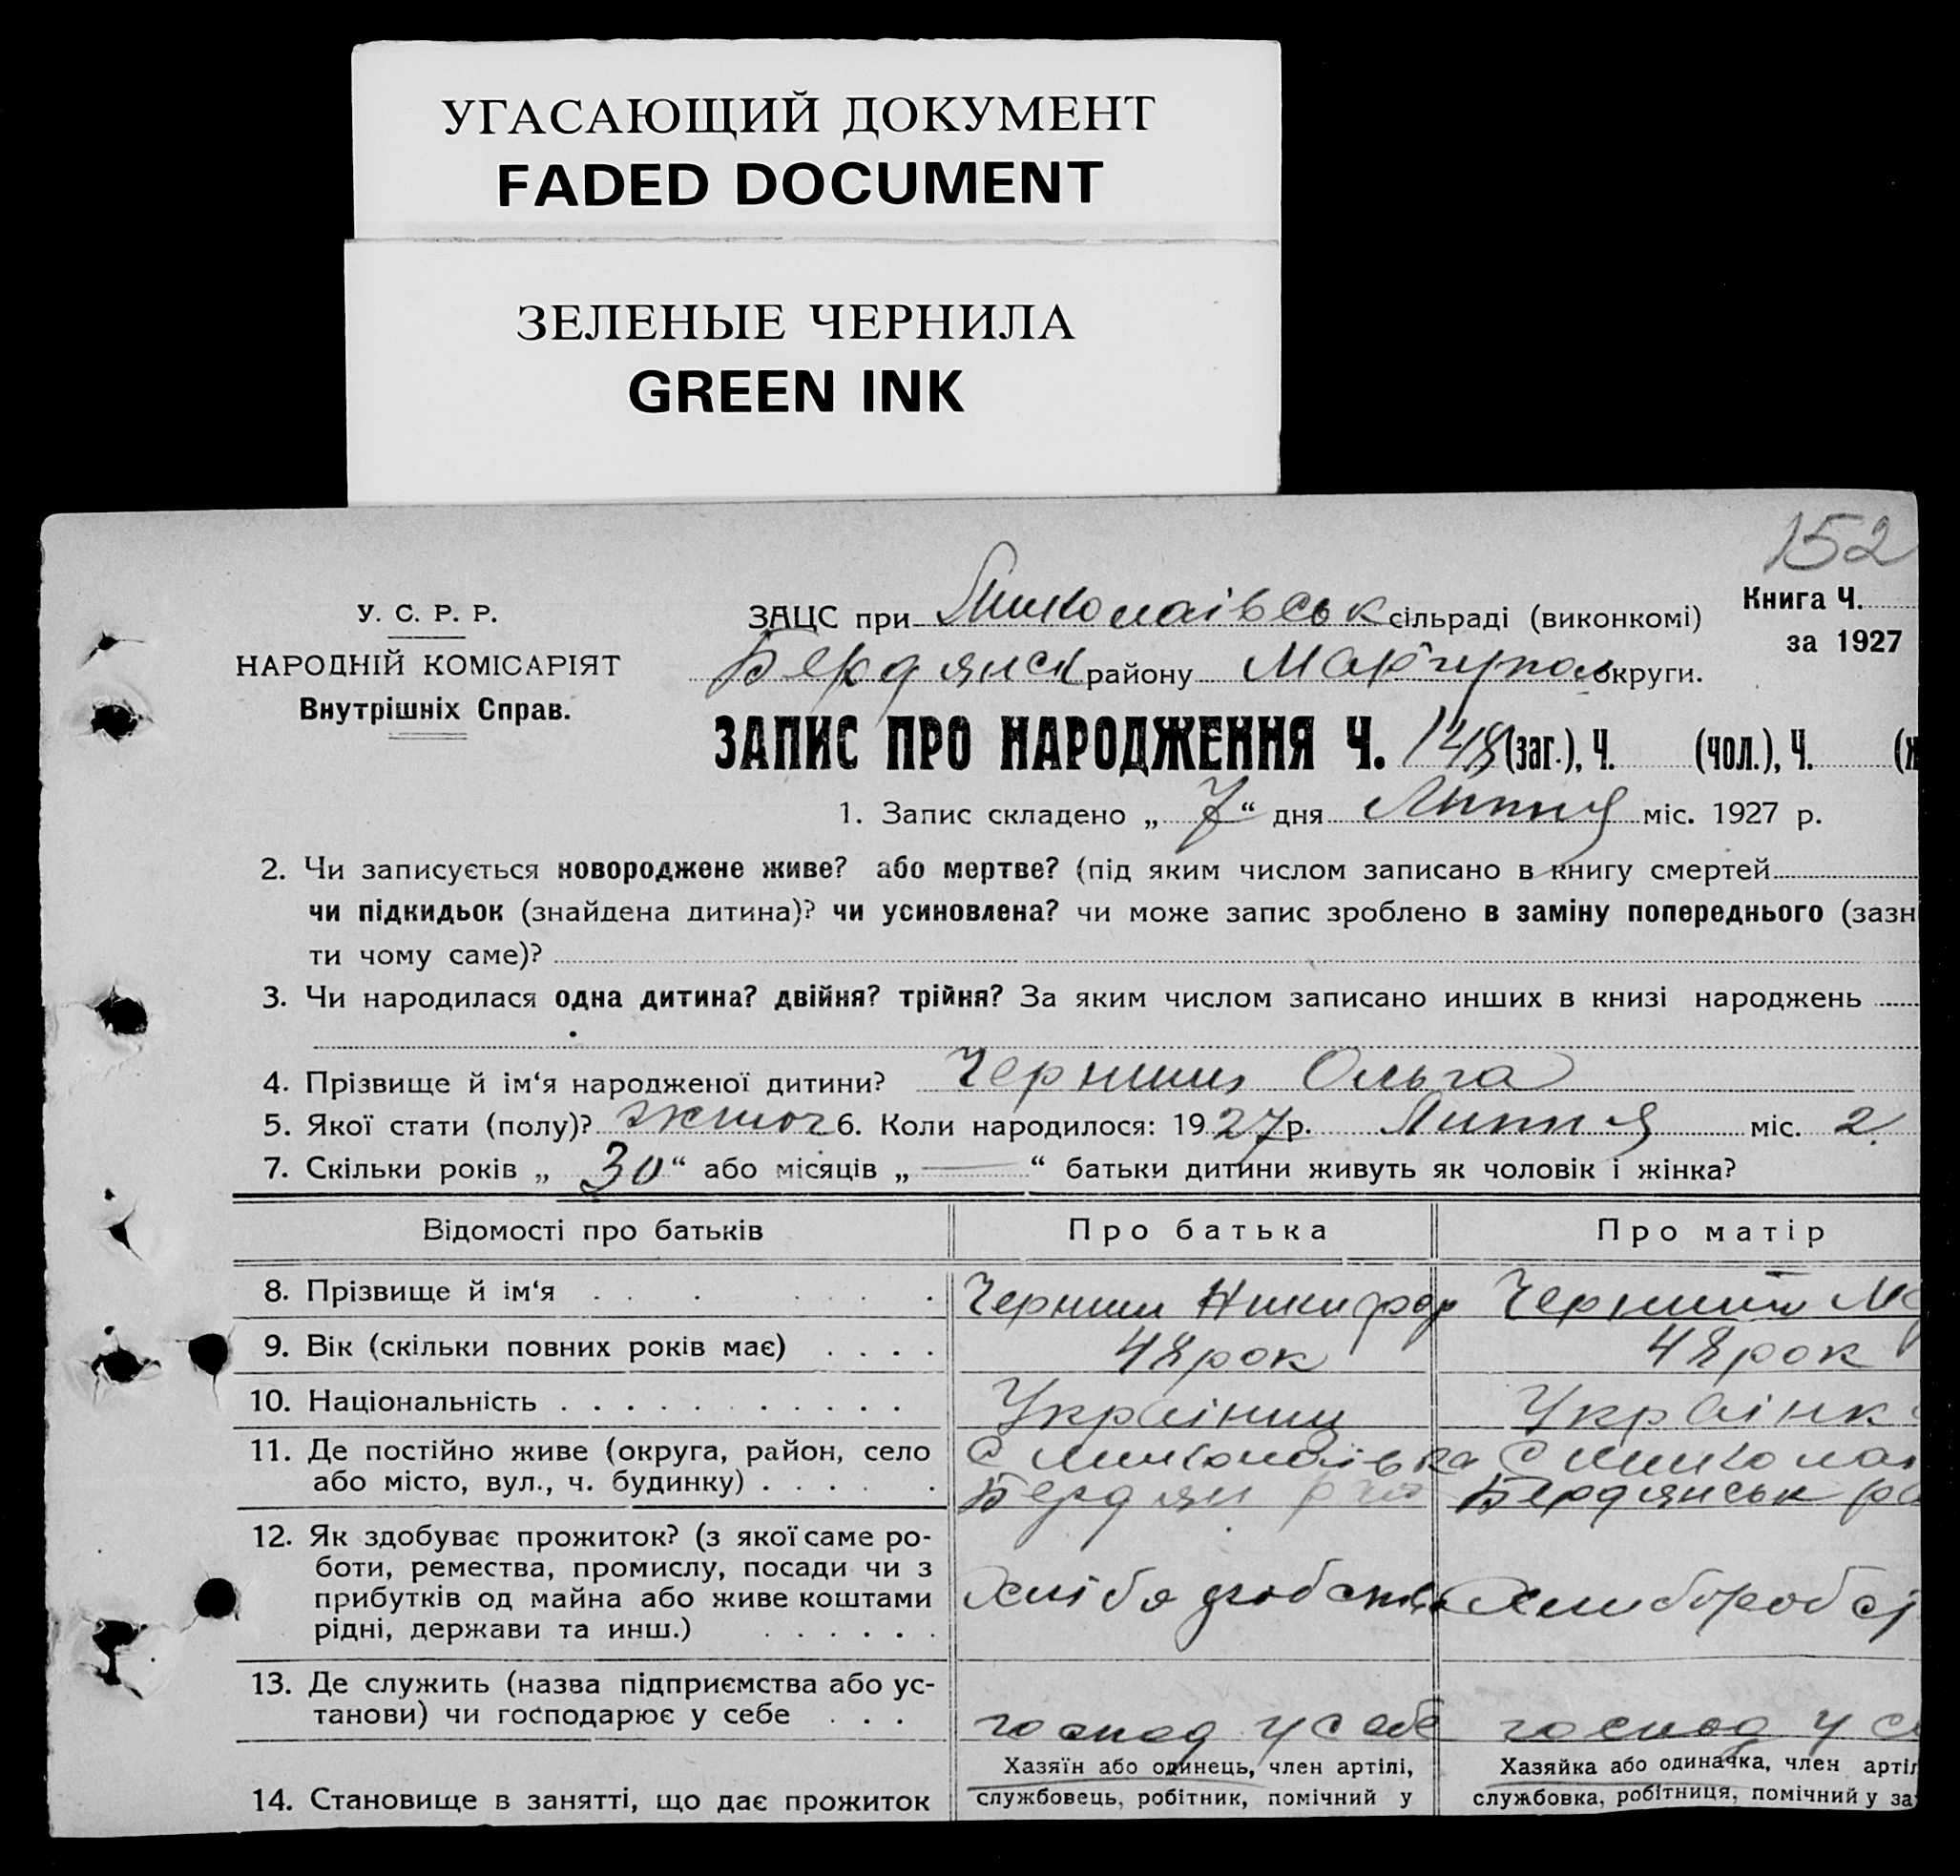 УГАСАЮЩИЙ ДОКУМЕНТ
FADED DOCUMENT
ЗЕЛЕНЫЕ ЧЕРНИЛА
GREEN INK
152
У. С. Р. Р.
НАРОДНІЙ КОМІСАРІЯТ
Внутрішніх Справ.
ЗАЦС при Миколаівськ сільраді (виконкомі)
Книга Ч.
за 1927
Бердянськ району Маріупол округи.
ЗАПИС ПРО НАРОДЖЕННЯ Ч. 148 (заг.), Ч. (чол.), Ч. (ж
1. Запис складено „ 7 “ дня Липня міс. 1927 р.
2. Чи записується новороджене живе? або мертве? (під яким числом записано в книгу смертей
чи підкидьок (знайдена дитина)? чи усиновлена? чи може запис зроблено в заміну попереднього (зазн
ти чому саме)?
3. Чи народилася одна дитина? двійня? трійня? За яким числом записано инших в книзі народжень
4. Прізвище й ім‘я народженої дитини? Черниш Ольга
5. Якої стати (полу)? жіноч 6. Коли народилося: 1927 р. Липня міс. 2
7. Скільки років „ 30 “ або місяців „ — “ батьки дитини живуть як чоловік і жінка?
Відомості про батьків Про батька Про матір
8. Прізвище й ім‘я Черниш Никифор Черниш
9. Вік (скільки повних років має) 48 рок 48 рок
10. Національність Українець Українк
11. Де постійно живе (округа, район, село С Миколаівка С Микола
або місто, вул., ч. будинку) Бердян рай Бердянськ ра
12. Як здобуває прожиток? (з якої саме ро-
боти, ремества, промислу, посади чи з
прибутків од майна або живе коштами Хлібо робств Хлиборобс
рідні, держави та инш.)
13. Де служить (назва підприємства або ус-
танови) чи господарює у себе господ у себе господ у с
Хазяїн або одинець, член артілі, Хазяйка або одиначка, член артіл
14. Становище в занятті, що дає прожиток службовець, робітник, помічний у службовка, робітниця, помічний у за